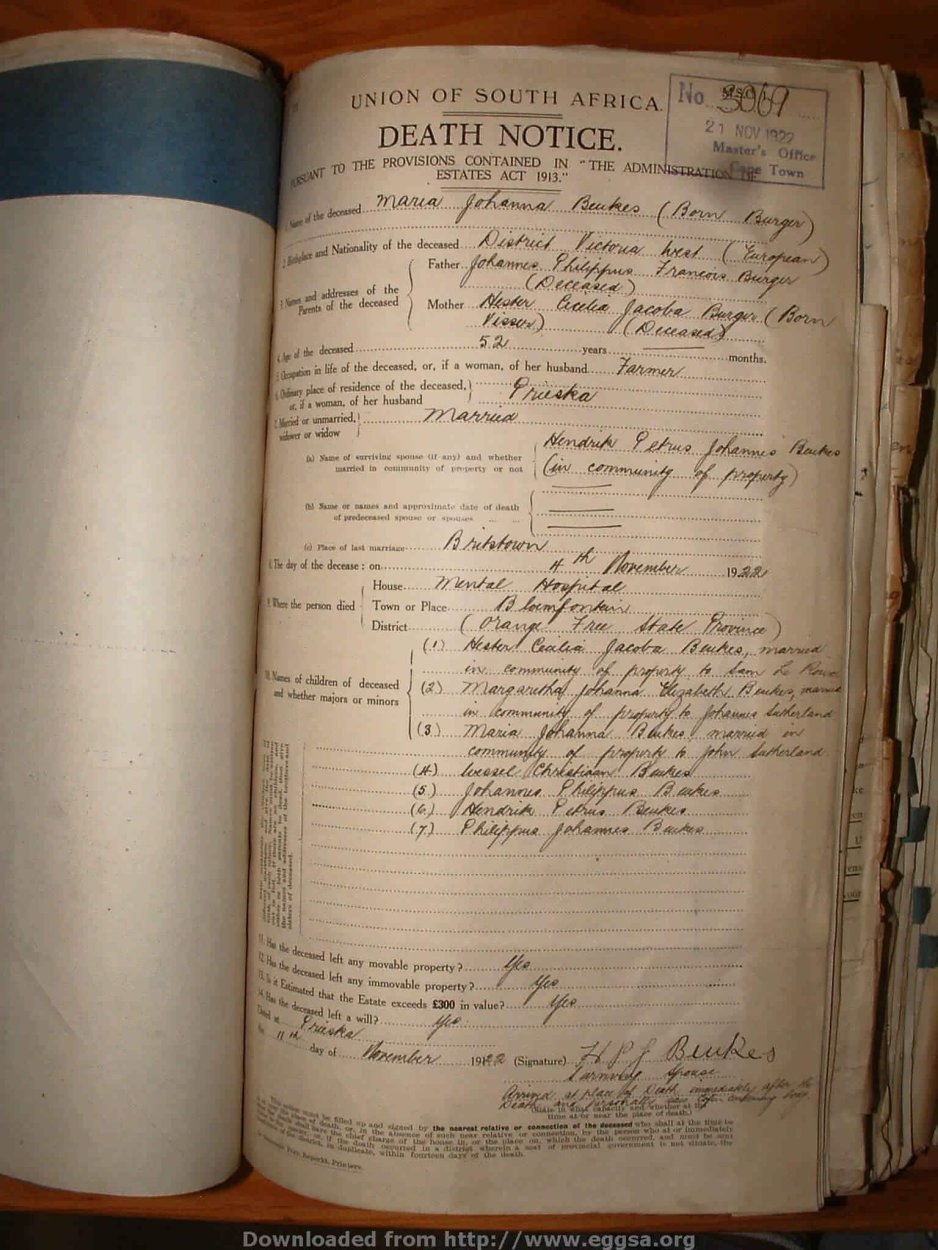 UNION OF SOUTH AFRICA.
No. 3069
21 NOV 1922
Master's Office
Cape Town
DEATH NOTICE.
PURSUANT TO THE PROVISIONS CONTAINED IN "THE ADMINISTRATION OF
ESTATES ACT 1913."
1. Name of the deceased Maria Johanna Beukes (Born Burger)
2. Birthplace and Nationality of the deceased District Victoria West (European)
3. Names and addresses of the Parents of the deceased
Father Johannes Philippus Francois Burger
(Deceased)
Mother Hester Cecilia Jacoba Burger (Born
Visser) (Deceased)
4. Age of the deceased 52 years months.
5. Occupation in life of the deceased, or, if a woman, of her husband Farmer
6. Ordinary place of residence of the deceased, or, if a woman, of her husband Prieska
7. Married or unmarried, widower or widow Married
(a) Name of surviving spouse (if any) and whether married in community of property or not
Hendrik Petrus Johannes Beukes
(in community of property)
(b) Name or names and approximate date of death of predeceased spouse or spouses
(c) Place of last marriage Britstown
8. The day of the decease: on 4th November 1922
9. Where the person died
House Mental Hospital
Town or Place Bloemfontein
District (Orange Free State Province)
10. Names of children of deceased and whether majors or minors
(1) Hester Cecilia Jacoba Beukes, married
in community of property to Sam Le Roux
(2) Margaretha Johanna Elizabeth Beukes, married
in community of property to Johannes Sutherland
(3) Maria Johanna Beukes married in
community of property to John Sutherland
(4) Wessel Christiaan Beukes
(5) Johannes Philippus Beukes
(6) Hendrik Petrus Beukes
(7) Philippus Johannes Beukes
11. Has the deceased left any movable property? Yes
12. Has the deceased left any immovable property? Yes
13. Is it Estimated that the Estate exceeds £300 in value? Yes
14. Has the deceased left a will? Yes
Dated at Prieska
the 11th day of November 1922 (Signature) H P J Beukes
Surviving Spouse
Arrived at place of Death immediately after the
Death and personally saw Coffin containing body.
(State in what capacity and whether at the
time at or near the place of death.)
filled up and signed by the nearest relative or connection of the deceased who shall at the time be
place of death, or, in the absence of such near relative or connection, by the person who at or immediately
shall have the chief charge of the house in, or the place on, which the death occurred, and must be sent
if the death occurred in a district wherein a seat of provincial government is not situate, the
of the district, in duplicate, within fourteen days of the death.
Printers.
Downloaded from http://www.eggsa.org